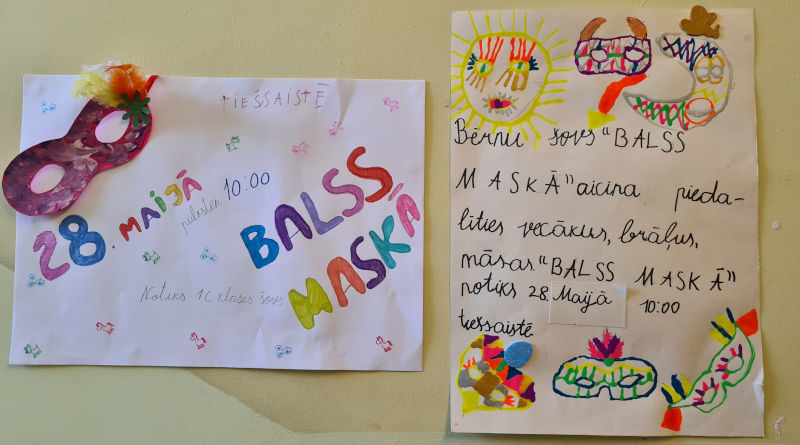 TIEŠSAISTĒ
28. MAIJĀ
pulksten 10:00
BALSS
MASKĀ
Notiks 1C klases šovs
Bērnu šovs "BALSS
MASKĀ" aicina pieda-
līties vecākus, brāļus,
māsas "BALSS MASKĀ"
notiks 28. Maijā 10:00
tiešsaistē